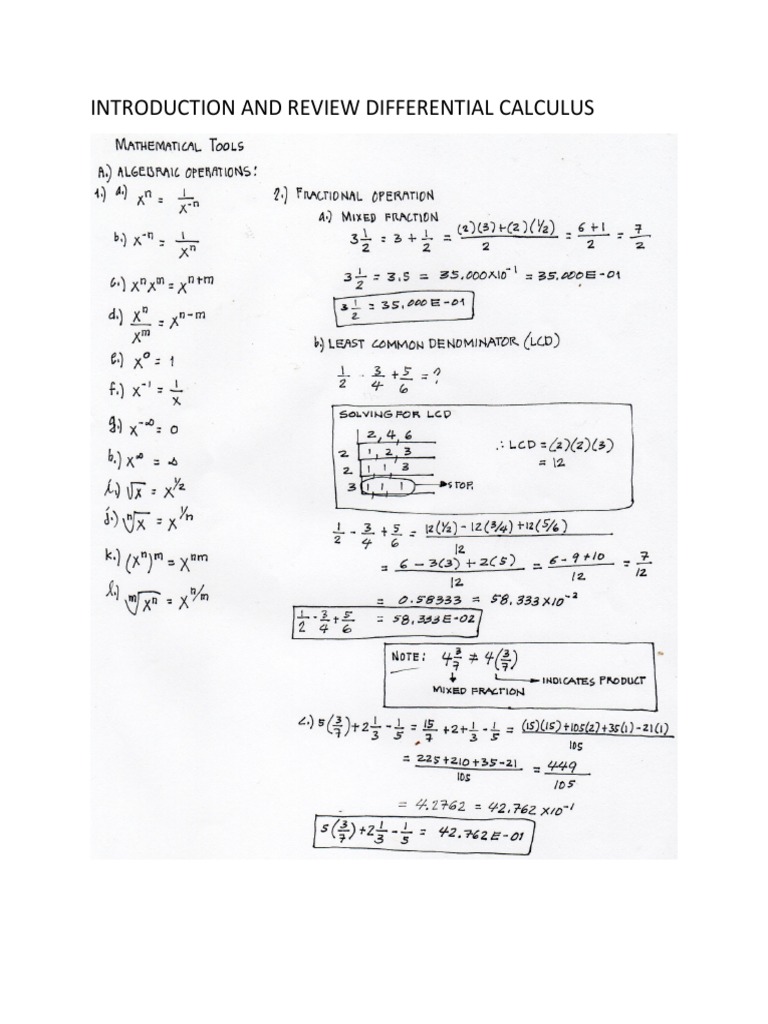 INTRODUCTION AND REVIEW DIFFERENTIAL CALCULUS
MATHEMATICAL TOOLS
A.) ALGEBRAIC OPERATIONS:
1.) a.) xⁿ = 1/x⁻ⁿ
b.) x⁻ⁿ = 1/xⁿ
c.) xⁿxᵐ = xⁿ⁺ᵐ
d.) xⁿ/xᵐ = xⁿ⁻ᵐ
e.) x⁰ = 1
f.) x⁻¹ = 1/x
g.) x^-∞ = 0
h.) x^∞ = ∞
i.) √x = x^1/2
j.) ⁿ√x = x^1/n
k.) (xⁿ)ᵐ = xⁿᵐ
l.) ᵐ√xⁿ = x^n/m
2.) FRACTIONAL OPERATION
a.) MIXED FRACTION
3 1/2 = 3 + 1/2 = (2)(3)+(2)(1/2)/2 = 6+1/2 = 7/2
3 1/2 = 3.5 = 35.000x10⁻¹ = 35.000E-01
3 1/2 = 35.000E-01
b.) LEAST COMMON DENOMINATOR (LCD)
1/2 - 3/4 + 5/6 = ?
SOLVING FOR LCD
2, 4, 6
2 1, 2, 3
2 1, 1, 3
3 1, 1, 1 STOP.
∴ LCD = (2)(2)(3)
= 12
1/2 - 3/4 + 5/6 = 12(1/2) - 12(3/4) + 12(5/6)/12
= 6 - 3(3) + 2(5)/12 = 6-9+10/12 = 7/12
= 0.58333 = 58.333x10⁻²
1/2 - 3/4 + 5/6 = 58.333E-02
NOTE: 4 3/7 ≠ 4(3/7)
INDICATES PRODUCT
MIXED FRACTION
c.) 5(3/7)+2 1/3 - 1/5 = 15/7 + 2 + 1/3 - 1/5 = (15)(15)+105(2)+35(1)-21(1)/105
= 225+210+35-21/105 = 449/105
= 4.2762 = 42.762x10⁻¹
5(3/7)+2 1/3 - 1/5 = 42.762E-01